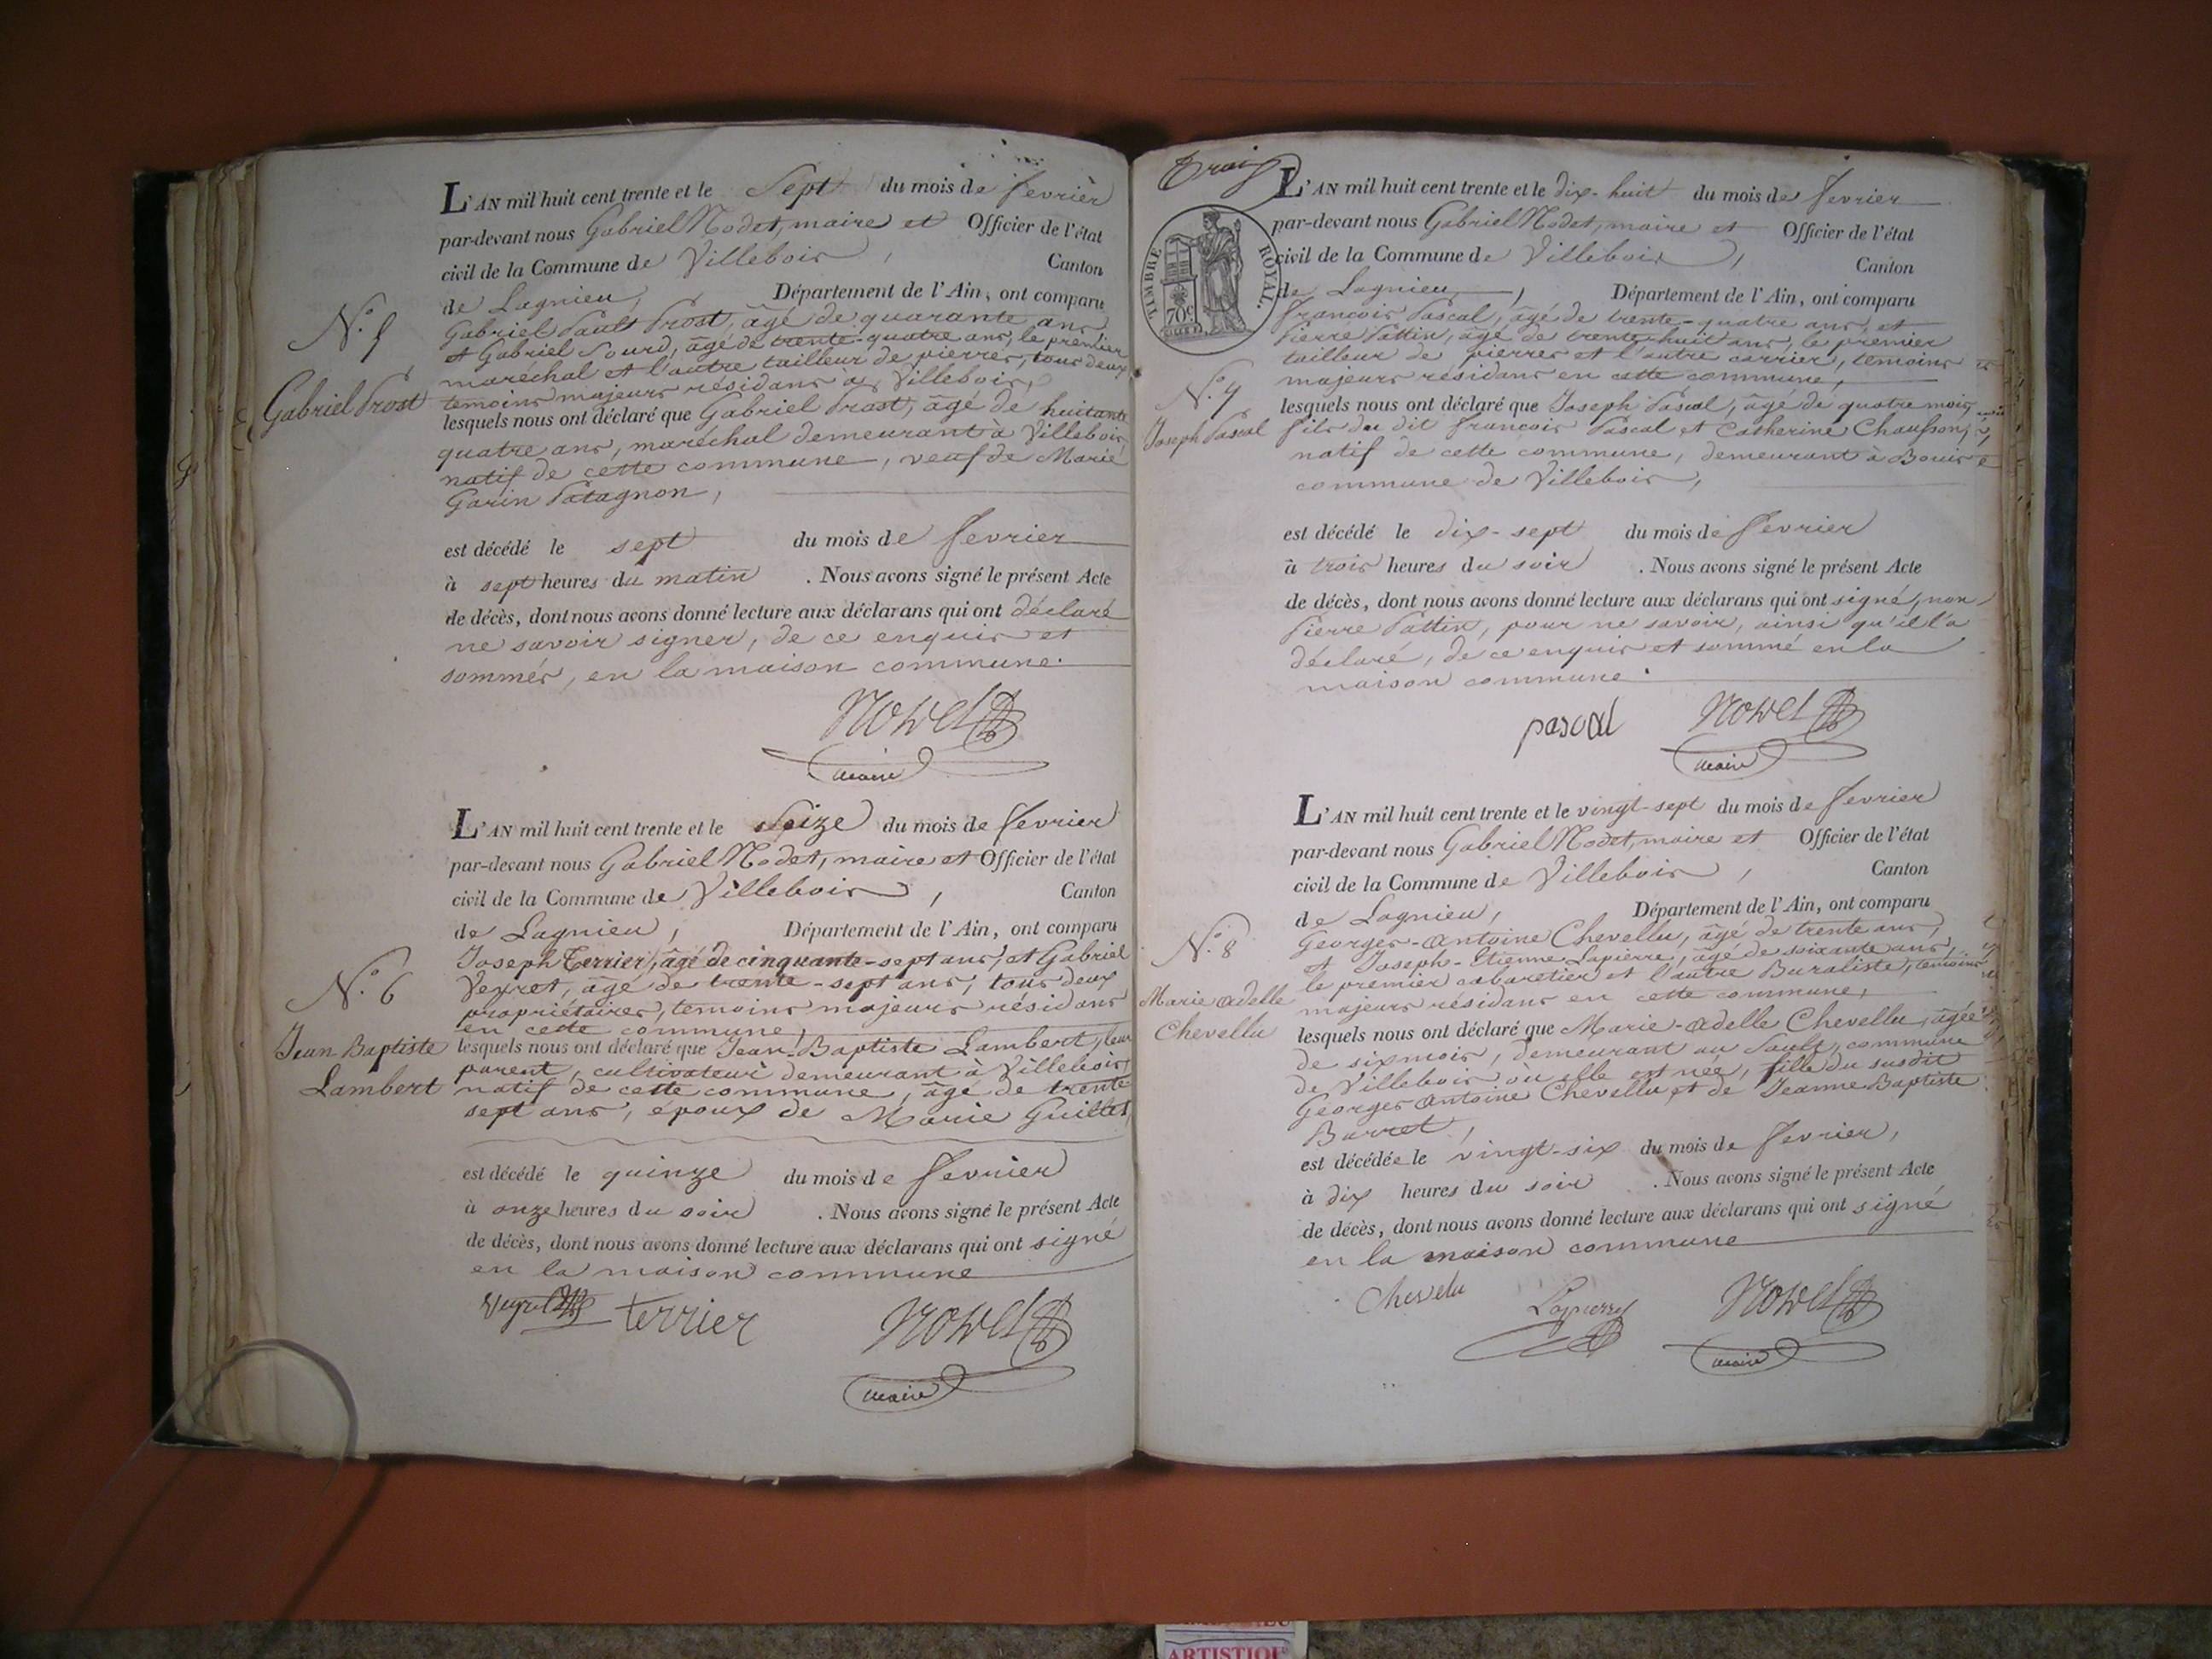 L'AN mil huit cent trente et le Sept du mois de fevrier
par-devant nous Gabriel Nodet, maire et Officier de l'état
civil de la Commune de Villebois, Canton
de Lagnieu, Département de l'Ain, ont comparu
N.° 5
Gabriel Prost, âgé de quarante ans,
et Gabriel Sourd, âgé de trente-quatre ans, le premier
maréchal et l'autre tailleur de pierres, tous deux
temoins majeurs résidans à Villebois,
Gabriel Prost
lesquels nous ont déclaré que Gabriel Prost, âgé de huitante
quatre ans, maréchal demeurant à Villebois
natif de cette commune, veuf de Marie
Garin Patagnon,
est décédé le sept du mois de fevrier
à sept heures du matin . Nous avons signé le présent Acte
de décès, dont nous avons donné lecture aux déclarans qui ont déclaré
ne savoir signer, de ce enquis et
sommés, en la maison commune.
Nowet
maire
L'AN mil huit cent trente et le Seize du mois de fevrier
par-devant nous Gabriel Nodet, maire et Officier de l'état
civil de la Commune de Villebois, Canton
de Lagnieu, Département de l'Ain, ont comparu
N.° 6
Joseph Terrier, âgé de cinquante-sept ans, et Gabriel
Veyret, âgé de trente-sept ans, tous deux
propriétaires, temoins majeurs résidans
en cette commune,
Jean Baptiste
Lambert
lesquels nous ont déclaré que Jean-Baptiste Lambert, leur
parent, cultivateur demeurant à Villebois,
natif de cette commune, âgé de trente
sept ans, epoux de Marie Guillet,
est décédé le quinze du mois de fevrier
à onze heures du soir . Nous avons signé le présent Acte
de décès, dont nous avons donné lecture aux déclarans qui ont signé
en la maison commune
terrier Nowet
maire
TIMBRE ROYAL.
70c
L'AN mil huit cent trente et le dix-huit du mois de fevrier
par-devant nous Gabriel Nodet, maire et Officier de l'état
civil de la Commune de Villebois, Canton
de Lagnieu, Département de l'Ain, ont comparu
francois Pascal, âgé de trente-quatre ans, et
Pierre Pattin, âgé de trente-huit ans, le premier
tailleur de pierres et l'autre carrier, temoins
majeurs residans en cette commune,
N.° 7
Joseph Pascal
lesquels nous ont déclaré que Joseph Pascal, âgé de quatre mois,
fils du dit francois Pascal et Catherine Chausson,
natif de cette commune, demeurant à Bouis
commune de Villebois,
est décédé le dix-sept du mois de fevrier
à trois heures du soir . Nous avons signé le présent Acte
de décès, dont nous avons donné lecture aux déclarans qui ont signé, non
Pierre Pattin, pour ne savoir, ainsi qu'il l'a
déclaré, de ce enquis et sommé en la
maison commune.
pascal Nowet
maire
L'AN mil huit cent trente et le vingt-sept du mois de fevrier
par-devant nous Gabriel Nodet, maire et Officier de l'état
civil de la Commune de Villebois, Canton
de Lagnieu, Département de l'Ain, ont comparu
N.° 8
Georges-Antoine Chevellu, âgé de trente ans,
et Joseph-Etienne Lapierre, âgé de soixante ans,
le premier cabaretier et l'autre Buraliste, temoins
majeurs résidans en cette commune,
Marie adelle
Chevellu
lesquels nous ont déclaré que Marie-adelle Chevellu, âgée
de six mois, demeurant au Sault, commune
de Villebois où elle est née, fille du susdit
Georges Antoine Chevellu et de Jeanne Baptiste
Barret,
est décédée le vingt-six du mois de fevrier,
à dix heures du soir . Nous avons signé le présent Acte
de décès, dont nous avons donné lecture aux déclarans qui ont signé
en la maison commune
Chevelu Lapierre Nowet
maire
ARTISTIQU